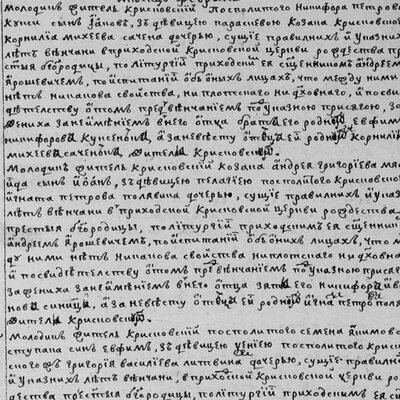 молодикъ житель крисновскїй посполитого никифора петрова
сынъ їаковъ, зъ дѣвицею параскевою козака крисновског
корнилїя михеева сачена дочерью, сущїе правилнихъ и указних
лѣтъ вѣнчани в приходской крисновской церкви рождества пре
стыя бгородицы, по лѣтургїи приходскимъ ея сщенникомъ андреемъ
ярошевичемъ, по испитанїи обоихъ лицахъ, что между ними
нѣтъ никакова свойства, ни плотскаго ни дховнаго, и по сви
дѣтелству о томъ предъ вѣнчанїемъ под указною присягою, за
жениха заимѣнїемъ в него отца братъ его родной евфимъ
никифоровъ, а за невѣсту отецъ ей родной корнилїй
михеевъ саченокъ, жители крисновскїе.
молодикъ житель крисновскїй козака андрея григорїева
сынъ їоанъ, зъ дѣвицею пелагїею посполитого крисновского
игната петрова полявина дочерью, сущїе правилнихъ и указ
лѣтъ вѣнчани в приходской крисновской церкви рождества
престыя бгородицы, по лѣтургїи приходскимъ ея сщенникомъ
андреемъ ярошевичемъ, по испитанїи обоихъ лицахъ, что м
ду ними нѣтъ никакова свойства ни плотскаго ни духовна
и по свидѣтелству о томъ пред вѣнчанїемъ по указною присяг
за жениха заимѣнїемъ в него отца его никифоръ
а за невѣсту отецъ ей родной игнатъ петровъ
жители крисновскїе.
молодикъ житель крисновскїй посполитого семена якимова
ступака синъ евфимъ, зъ дѣвицею посполитого крис
ского григорїя василїева литвина дочерью, сущїе правилни
и указнихъ лѣтъ вѣнчани, в приходской крисновской церкви ро
дества престыя бгородицы, по лѣтургїи приходскимъ ея сщ